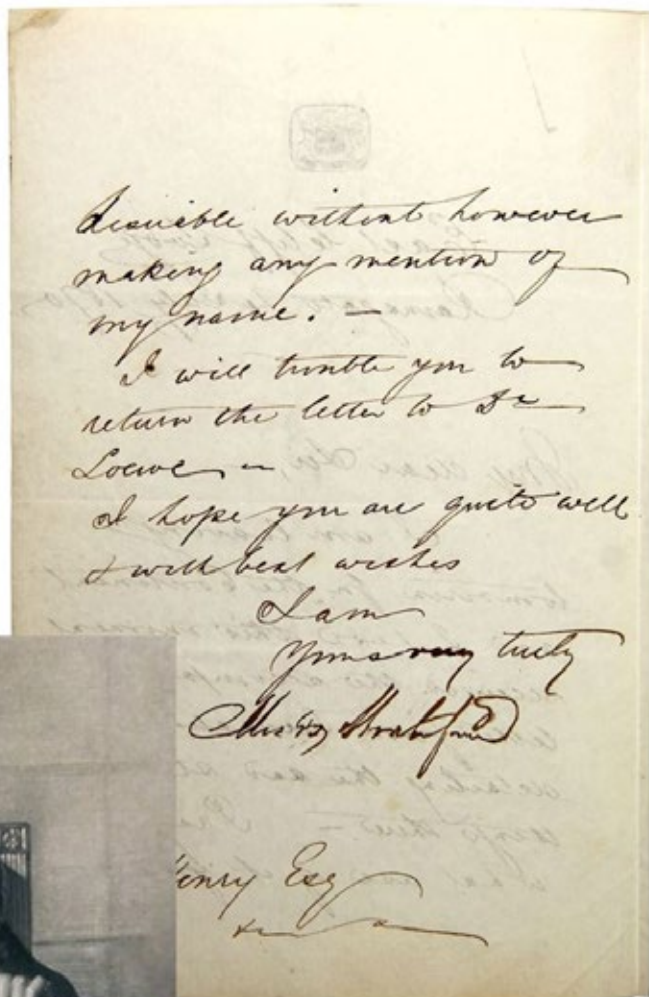 desirable without however
making any mention of
my name. —
I will trouble you to
return the letter to Dr
Loewe —
I hope you are quite well
& with best wishes
I am
Yours very truly
Henry Esq